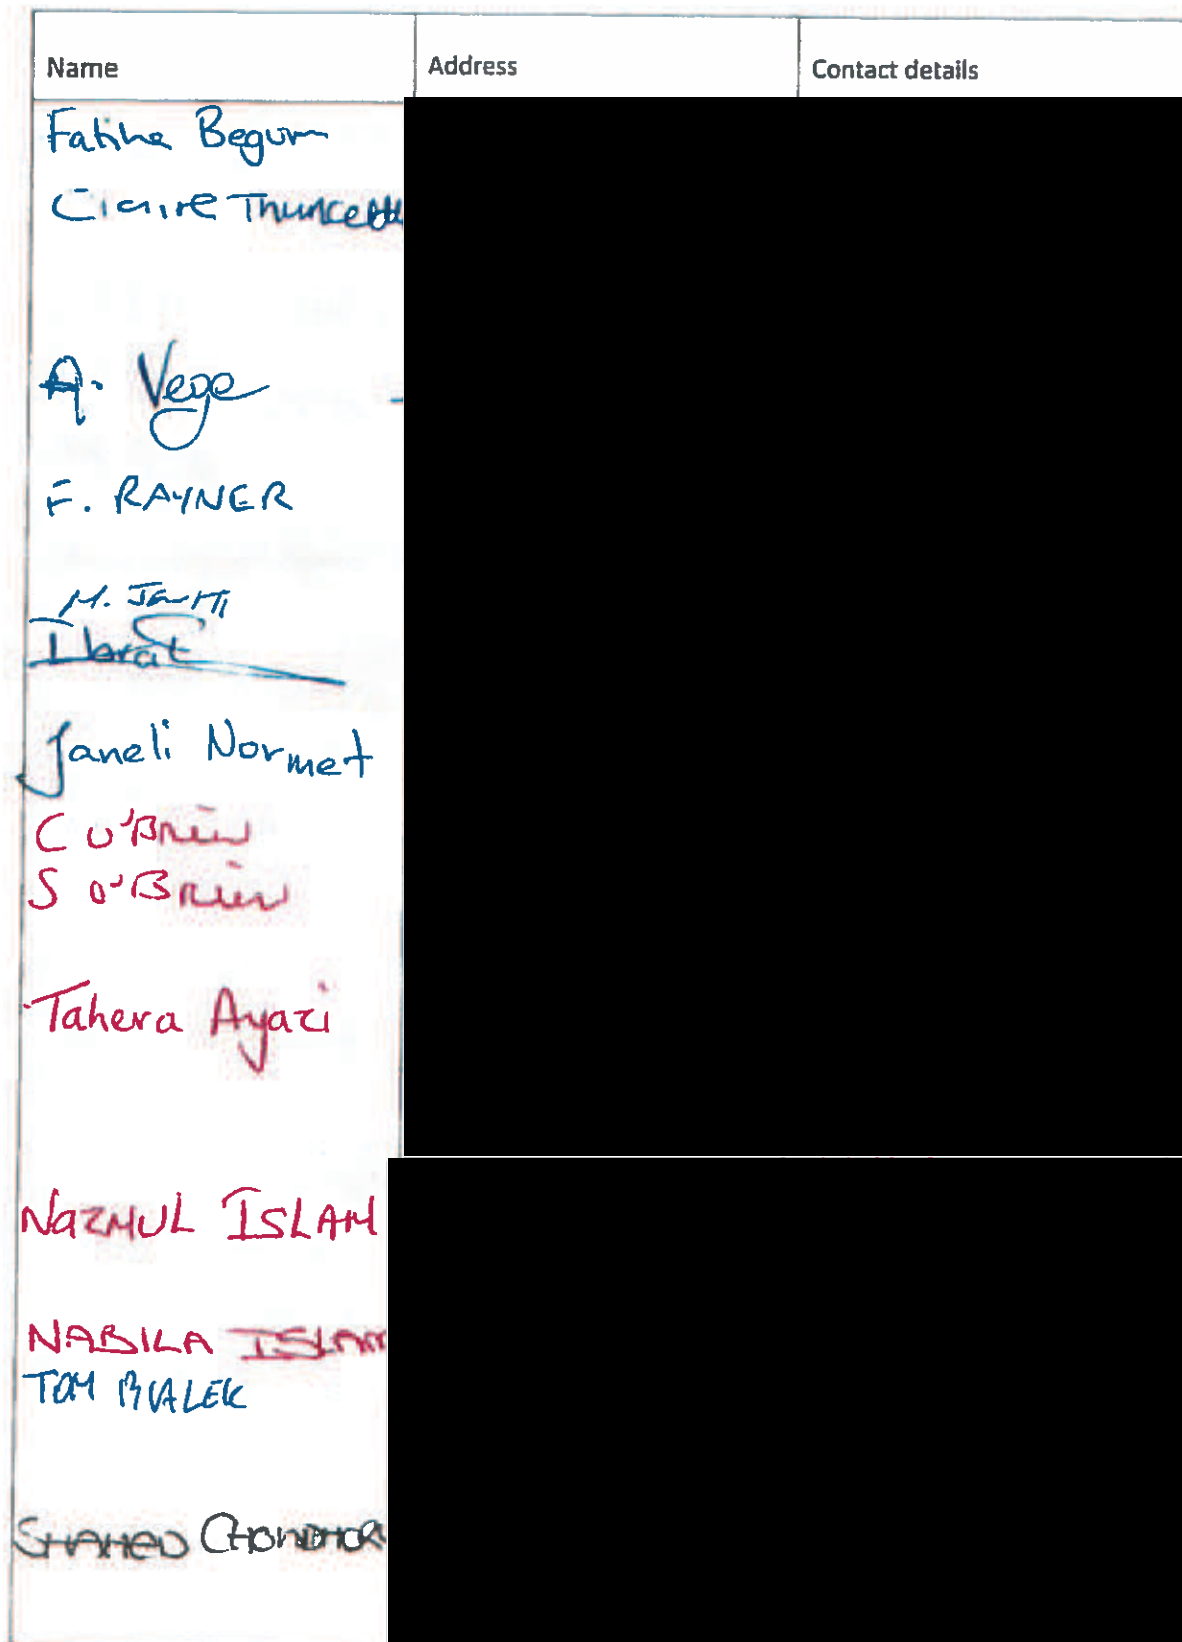 Name Address Contact details
Fatiha Begum
Claire
A. Vege
F. RAYNER
M.
Janeli Normet
C O'Brien
S O'Brien
Tahera Ayazi
NAZMUL ISLAM
NABILA ISLAM
TOM BIALEK
SHAHED